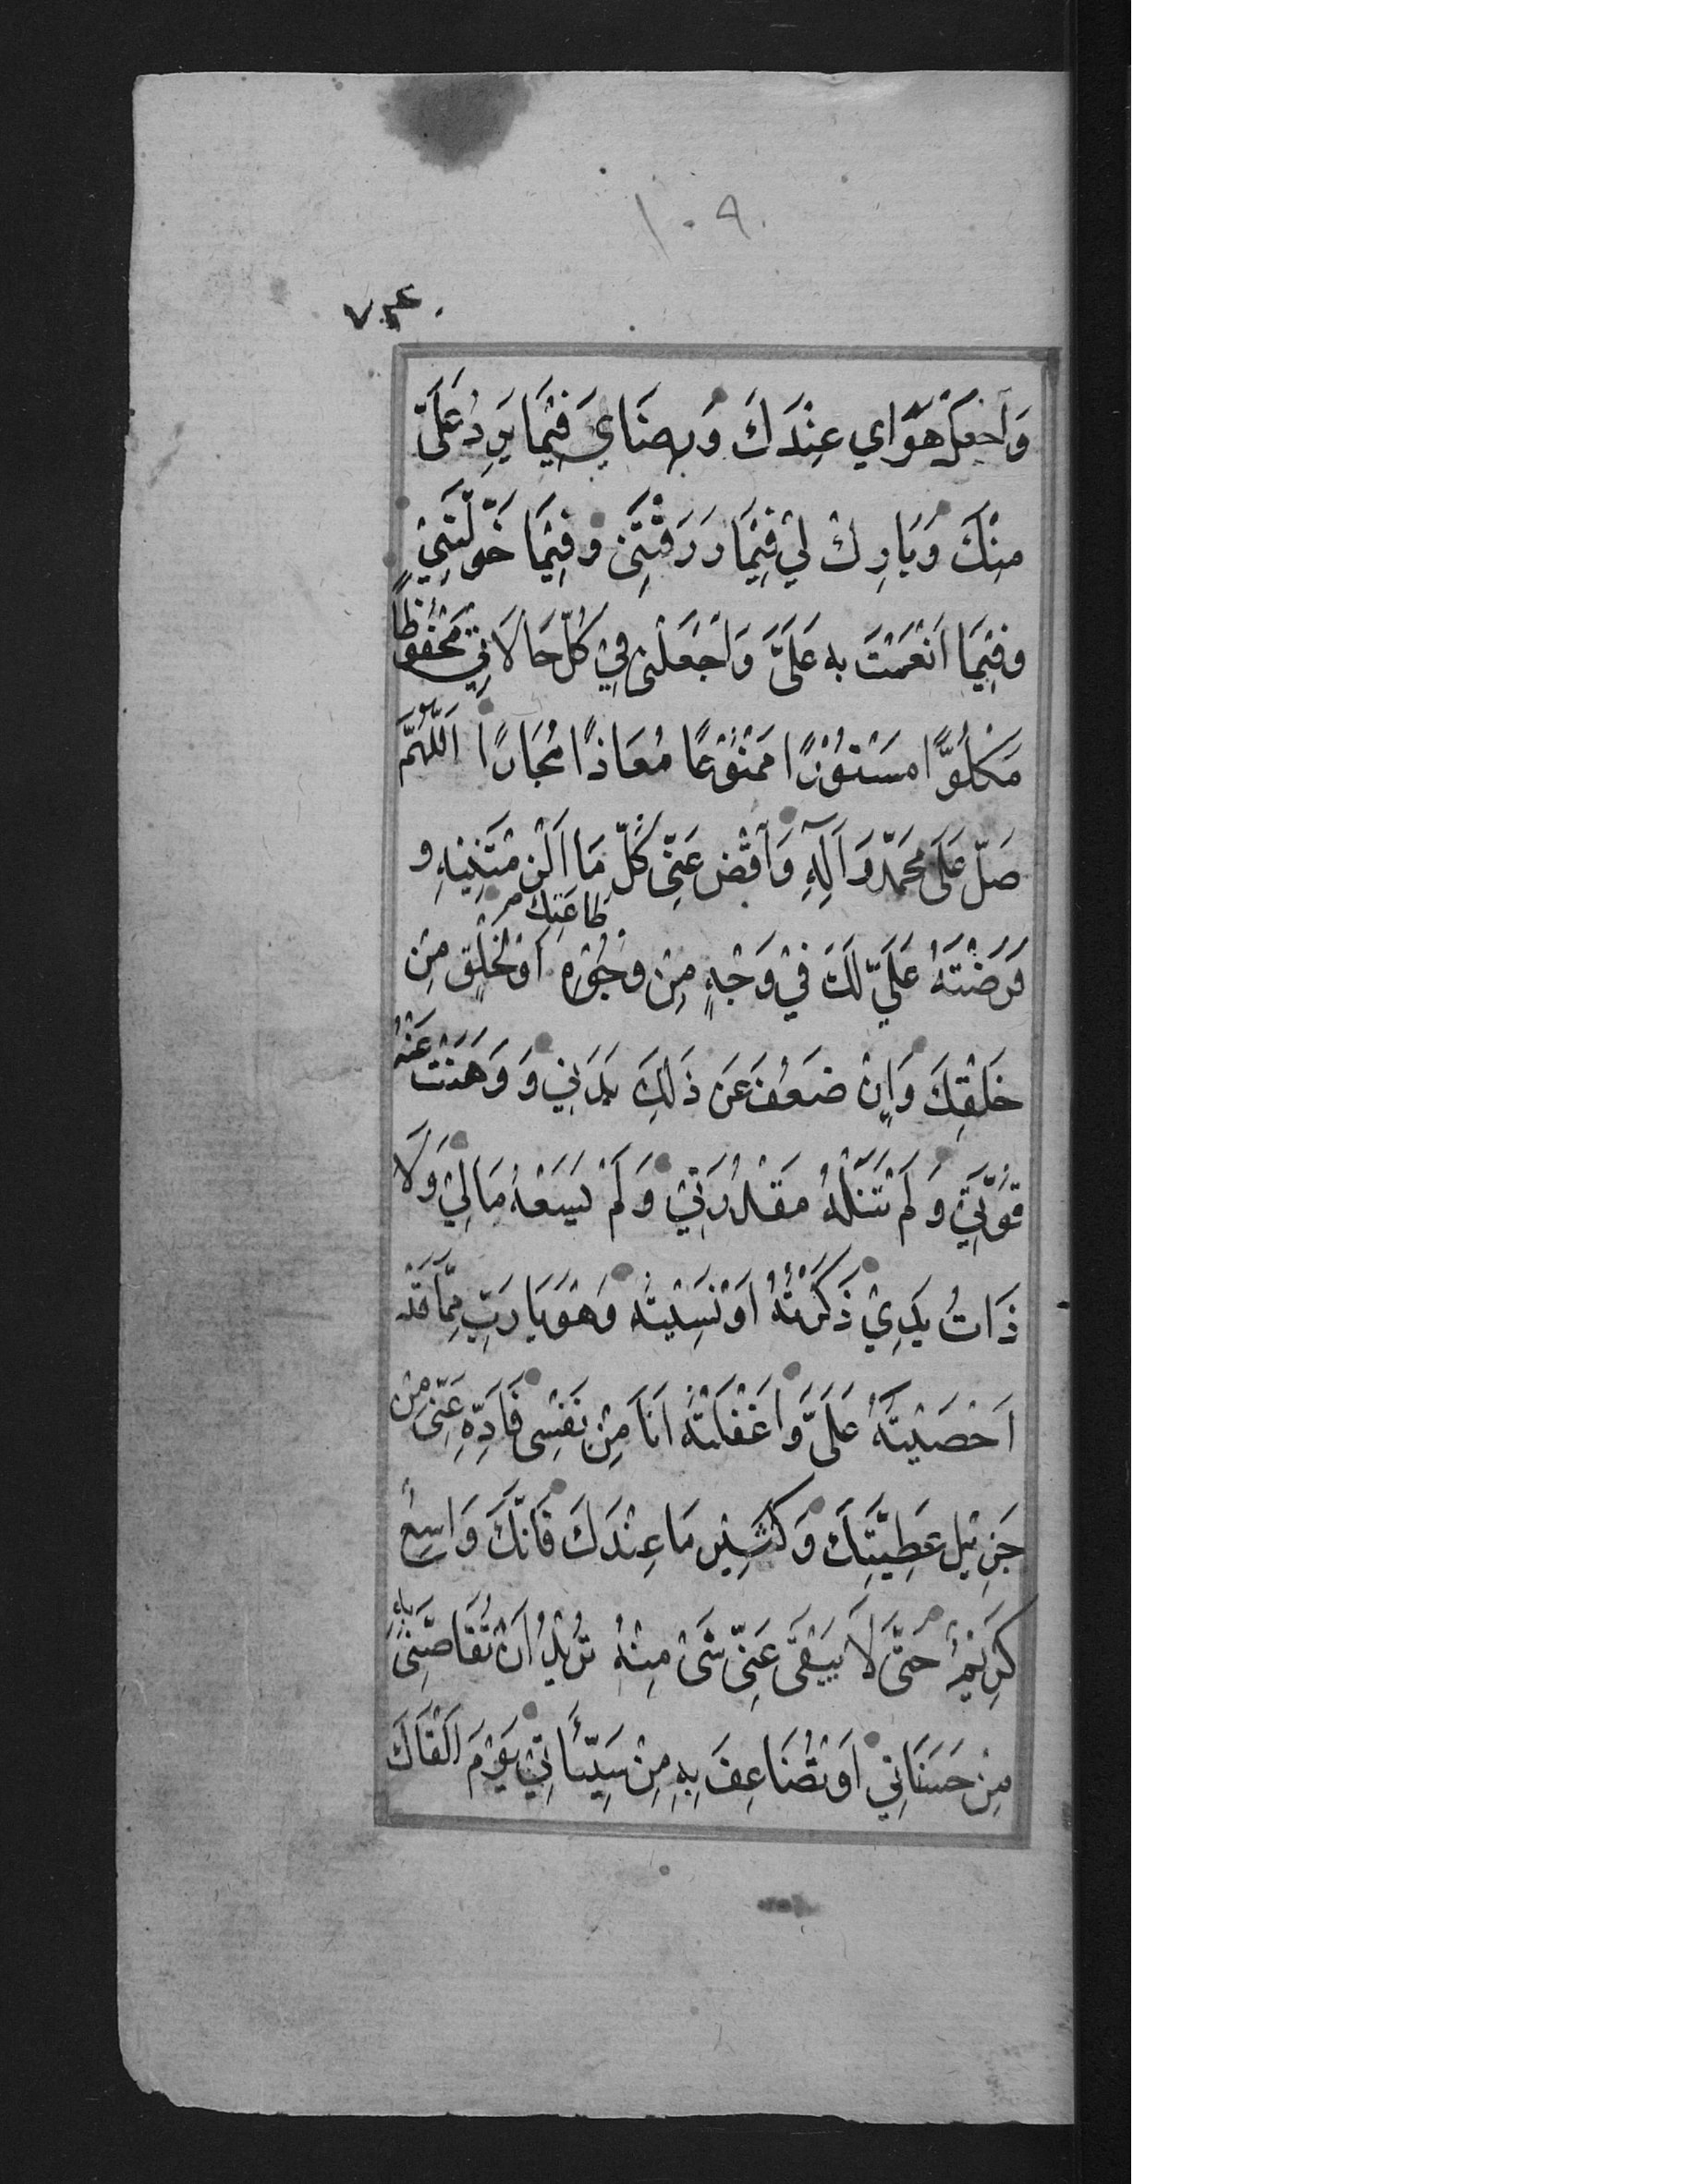 ١٠٩
وَاجْعَلْ هَوَايَ عِنْدَكَ وَرِضَايَ فِيْمَا يَرِدُ عَلَىَّ
مِنْكَ وَبَارِكْ لِيْ فِيْمَا رَزَقْتَنِىْ وَفِيْمَا خَوَّلْتَنِيْ
وَفِيْمَا اَنْعَمْتَ بِهِ عَلَىَّ وَاجْعَلْنِىْ فِيْ كُلِّ حَالَاتِيْ مَحْفُوْظًا
مَكْلُوًّا مَسْتُوْرًا مَمْنُوْعًا مُعَاذًا مُجَارًا اَللّٰهُمَّ
صَلِّ عَلَى مُحَمَّدٍ وَآلِهِ وَاقْضِ عَنِّىْ كُلَّ مَا اَلْزَمْتَنِيْهِ وَ
فَرَضْتَهُ عَلَيَّ لَكَ فِيْ وَجْهٍ مِنْ وُجُوْهِ طَاعَتِكَ اَوْ لِخَلْقٍ مِنْ
خَلْقِكَ وَاِنْ ضَعُفَ عَنْ ذٰلِكَ بَدَنِيْ وَ وَهَنَتْ عَنْهُ
قُوَّتِيْ وَلَمْ تَنَلْهُ مَقْدُرَتِيْ وَلَمْ يَسَعْهُ مَالِيْ وَلَا
ذَاتُ يَدِيْ ذَكَرْتُهُ اَوْ نَسِيْتُهُ وَهُوَ يَا رَبِّ مِمَّا قَدْ
اَحْصَيْتَهُ عَلَىَّ وَاَغْفَلْتُهُ اَنَا مِنْ نَفْسِىْ فَاَدِّهِ عَنِّىْ مِنْ
جَزِيْلِ عَطِيَّتِكَ وَكَثِيْرِ مَا عِنْدَكَ فَاِنَّكَ وَاسِعٌ
كَرِيْمٌ حَتَّى لَا يَبْقَى عَنِّىْ شَىْ مِنْهُ تُرِيْدُ اَنْ تُقَاصَّنِىْ بِهِ
مِنْ حَسَنَاتِيْ اَوْ تُضَاعِفَ بِهِ مِنْ سَيِّئَاتِيْ يَوْمَ اَلْقَاكَ